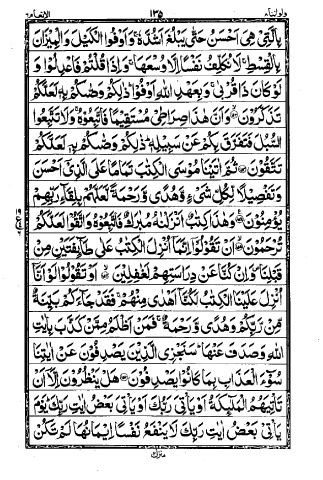 ولو اننا ٨ ١٣٥ الانعام ٦
بِالَّتِىْ هِىَ اَحْسَنُ حَتّٰى يَبْلُغَ اَشُدَّهٗ ۚ وَاَوْفُوا الْكَيْلَ وَالْمِيْزَانَ
بِالْقِسْطِ ۚ لَا نُكَلِّفُ نَفْسًا اِلَّا وُسْعَهَا ۚ وَاِذَا قُلْتُمْ فَاعْدِلُوْا وَ
لَوْ كَانَ ذَا قُرْبٰى ۚ وَبِعَهْدِ اللّٰهِ اَوْفُوْا ؕ ذٰلِكُمْ وَصّٰىكُمْ بِهٖ لَعَلَّكُمْ
تَذَكَّرُوْنَ ۙ وَاَنَّ هٰذَا صِرَاطِىْ مُسْتَقِيْمًا فَاتَّبِعُوْهُ ۚ وَلَا تَتَّبِعُوا
السُّبُلَ فَتَفَرَّقَ بِكُمْ عَنْ سَبِيْلِهٖ ؕ ذٰلِكُمْ وَصّٰىكُمْ بِهٖ لَعَلَّكُمْ
تَتَّقُوْنَ ثُمَّ اٰتَيْنَا مُوْسَى الْكِتٰبَ تَمَامًا عَلَى الَّذِىْۤ اَحْسَنَ
وَتَفْصِيْلًا لِّكُلِّ شَىْءٍ وَّهُدًى وَّرَحْمَةً لَّعَلَّهُمْ بِلِقَآءِ رَبِّهِمْ
يُؤْمِنُوْنَ وَهٰذَا كِتٰبٌ اَنْزَلْنٰهُ مُبٰرَكٌ فَاتَّبِعُوْهُ وَاتَّقُوْا لَعَلَّكُمْ
تُرْحَمُوْنَ ۙ اَنْ تَقُوْلُوْۤا اِنَّمَاۤ اُنْزِلَ الْكِتٰبُ عَلٰى طَآئِفَتَيْنِ مِنْ
قَبْلِنَا وَاِنْ كُنَّا عَنْ دِرَاسَتِهِمْ لَغٰفِلِيْنَ ۙ اَوْ تَقُوْلُوْا لَوْ اَنَّاۤ
اُنْزِلَ عَلَيْنَا الْكِتٰبُ لَكُنَّاۤ اَهْدٰى مِنْهُمْ ۚ فَقَدْ جَآءَكُمْ بَيِّنَةٌ
مِّنْ رَّبِّكُمْ وَهُدًى وَّرَحْمَةٌ ۚ فَمَنْ اَظْلَمُ مِمَّنْ كَذَّبَ بِاٰيٰتِ
اللّٰهِ وَصَدَفَ عَنْهَا ؕ سَنَجْزِى الَّذِيْنَ يَصْدِفُوْنَ عَنْ اٰيٰتِنَا
سُوْٓءَ الْعَذَابِ بِمَا كَانُوْا يَصْدِفُوْنَ هَلْ يَنْظُرُوْنَ اِلَّاۤ اَنْ
تَاْتِيَهُمُ الْمَلٰٓئِكَةُ اَوْ يَاْتِىَ رَبُّكَ اَوْ يَاْتِىَ بَعْضُ اٰيٰتِ رَبِّكَ ؕ يَوْمَ
يَاْتِىْ بَعْضُ اٰيٰتِ رَبِّكَ لَا يَنْفَعُ نَفْسًا اِيْمَانُهَا لَمْ تَكُنْ
منزل ٢